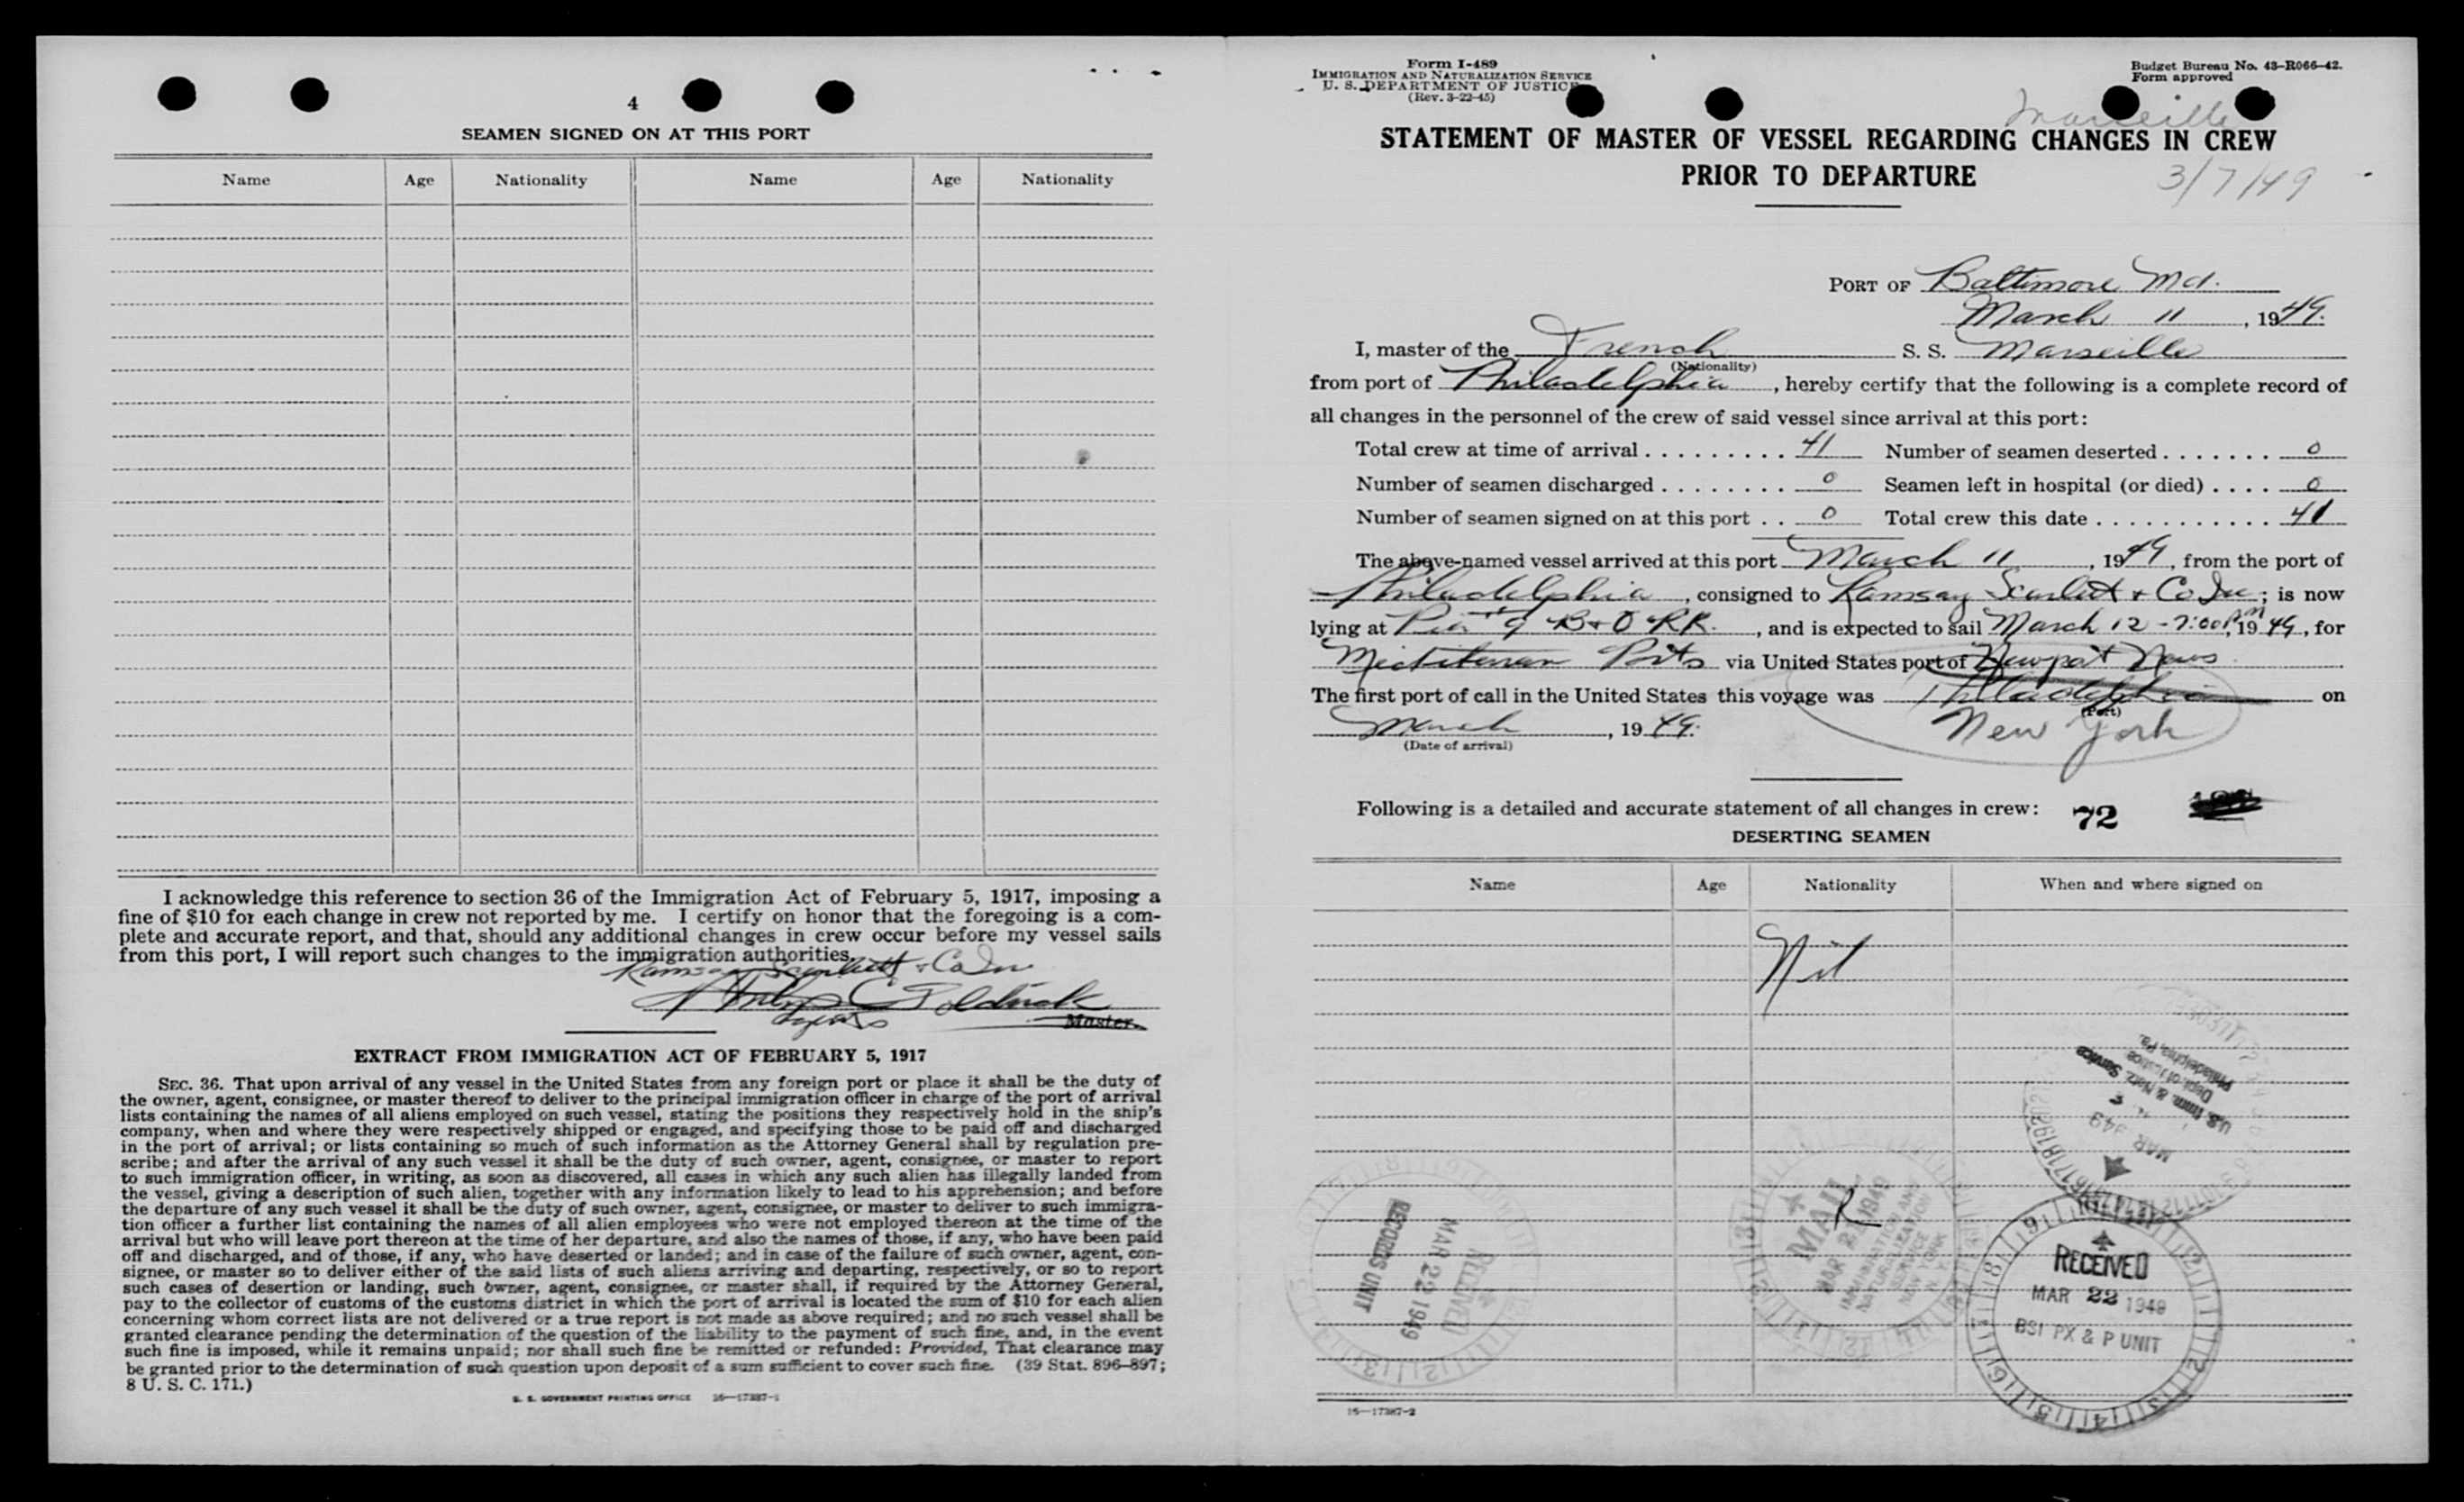 4
SEAMEN SIGNED ON AT THIS PORT
Name Age Nationality Name Age Nationality
I acknowledge this reference to section 36 of the Immigration Act of February 5, 1917, imposing a
fine of $10 for each change in crew not reported by me. I certify on honor that the foregoing is a com-
plete and accurate report, and that, should any additional changes in crew occur before my vessel sails
from this port, I will report such changes to the immigration authorities.
Ramsay Scarlett & Co Inc
Agents
Master.
EXTRACT FROM IMMIGRATION ACT OF FEBRUARY 5, 1917
SEC. 36. That upon arrival of any vessel in the United States from any foreign port or place it shall be the duty of
the owner, agent, consignee, or master thereof to deliver to the principal immigration officer in charge of the port of arrival
lists containing the names of all aliens employed on such vessel, stating the positions they respectively hold in the ship's
company, when and where they were respectively shipped or engaged, and specifying those to be paid off and discharged
in the port of arrival; or lists containing so much of such information as the Attorney General shall by regulation pre-
scribe; and after the arrival of any such vessel it shall be the duty of such owner, agent, consignee, or master to report
to such immigration officer, in writing, as soon as discovered, all cases in which any such alien has illegally landed from
the vessel, giving a description of such alien, together with any information likely to lead to his apprehension; and before
the departure of any such vessel it shall be the duty of such owner, agent, consignee, or master to deliver to such immigra-
tion officer a further list containing the names of all alien employees who were not employed thereon at the time of the
arrival but who will leave port thereon at the time of her departure, and also the names of those, if any, who have been paid
off and discharged, and of those, if any, who have deserted or landed; and in case of the failure of such owner, agent, con-
signee, or master so to deliver either of the said lists of such aliens arriving and departing, respectively, or so to report
such cases of desertion or landing, such owner, agent, consignee, or master shall, if required by the Attorney General,
pay to the collector of customs of the customs district in which the port of arrival is located the sum of $10 for each alien
concerning whom correct lists are not delivered or a true report is not made as above required; and no such vessel shall be
granted clearance pending the determination of the question of the liability to the payment of such fine, and, in the event
such fine is imposed, while it remains unpaid; nor shall such fine be remitted or refunded: Provided, That clearance may
be granted prior to the determination of such question upon deposit of a sum sufficient to cover such fine. (39 Stat. 896-897;
8 U. S. C. 171.)
U. S. GOVERNMENT PRINTING OFFICE 16—17387-1
Form I-489
IMMIGRATION AND NATURALIZATION SERVICE
U. S. DEPARTMENT OF JUSTICE
(Rev. 3-22-45)
Budget Bureau No. 43-R066-42.
Form approved
Marseille
STATEMENT OF MASTER OF VESSEL REGARDING CHANGES IN CREW
PRIOR TO DEPARTURE
3/7/49
PORT OF Baltimore Md.
March 11, 1949.
I, master of the French S. S. Marseille
(Nationality)
from port of Philadelphia, hereby certify that the following is a complete record of
all changes in the personnel of the crew of said vessel since arrival at this port:
Total crew at time of arrival . . . . . . . . . 41 Number of seamen deserted . . . . . . . 0
Number of seamen discharged . . . . . . . . 0 Seamen left in hospital (or died) . . . . 0
Number of seamen signed on at this port . . 0 Total crew this date . . . . . . . . . . . . 41
The above-named vessel arrived at this port March 11, 1949, from the port of
Philadelphia, consigned to Ramsay Scarlett & Co Inc; is now
lying at Pier #9 B+O RR., and is expected to sail March 12 - 7:00 Pm, 1949, for
Mediterranean Ports via United States port of Newport News
The first port of call in the United States this voyage was Philadelphia on
(Port)
New York
March, 1949.
(Date of arrival)
Following is a detailed and accurate statement of all changes in crew: 72
DESERTING SEAMEN
Name Age Nationality When and where signed on
Nil
U.S. Imm. & Natz. Service
Dept. of Justice
Philadelphia, Pa.
MAR 949
R
MAIL
MAR 21 1949
IMMIGRATION AND
NATURALIZATION
SERVICE
NEW YORK
N. Y.
RECEIVED
MAR 22 1949
RECORDS UNIT
RECEIVED
MAR 22 1949
BSI PX & P UNIT
16—17387-2